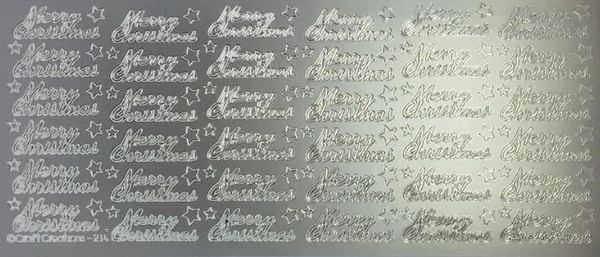 Merry Merry Merry Merry Merry Merry
Christmas Christmas Christmas Christmas Christmas Christmas
Merry Merry Merry Merry Merry Merry
Christmas Christmas Christmas Christmas Christmas Christmas
Merry Merry Merry Merry Merry Merry
Christmas Christmas Christmas Christmas Christmas Christmas
Merry Merry Merry Merry Merry Merry
Christmas Christmas Christmas Christmas Christmas Christmas
Merry Merry Merry Merry Merry Merry
Christmas Christmas Christmas Christmas Christmas Christmas
Merry Merry Merry Merry Merry Merry
Christmas Christmas Christmas Christmas Christmas Christmas
©Craft Creations -